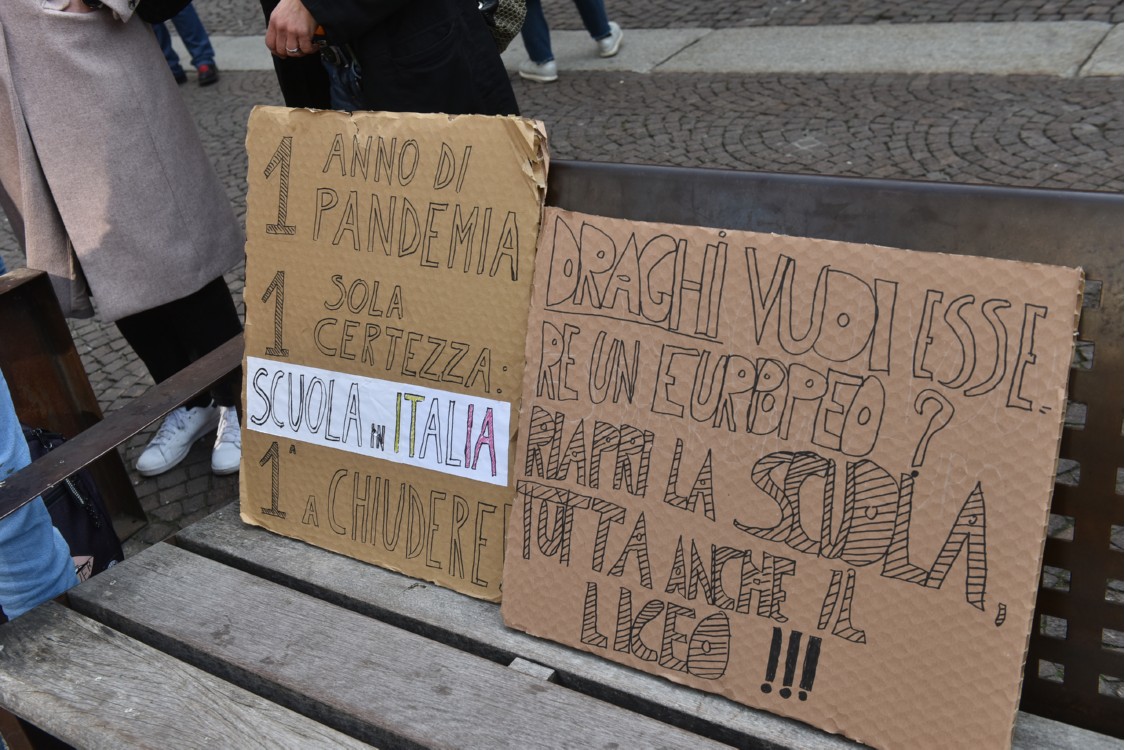 1 ANNO DI
PANDEMIA
1 SOLA
CERTEZZA:
SCUOLA IN ITALIA
1ᴬ A CHIUDERE
DRAGHi VUOI ESSE-
RE UN EUROPEO ?
RIAPRI LA SCUOLA,
TUTTA ANCHE IL
LICEO !!!